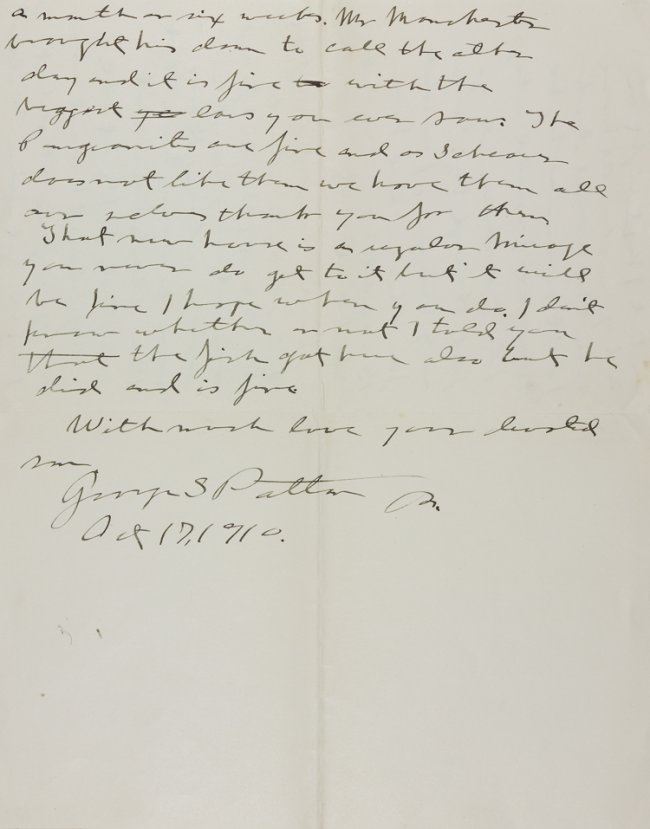 a month or six weeks. Mr Manchester
brought his down to call the other
day and it is fine to with the
biggest ears you ever saw. The
are fine and as
does not like them we have them all
our selves thank you for them
That new house is a regular mirage
you never do get to it but it will
be fine I hope when you do. I don't
know whether or not I told you
that the fish got here also but he
did and is fine.
With much love your devoted
son
George S Patton Jr.
Oct 17, 1910.